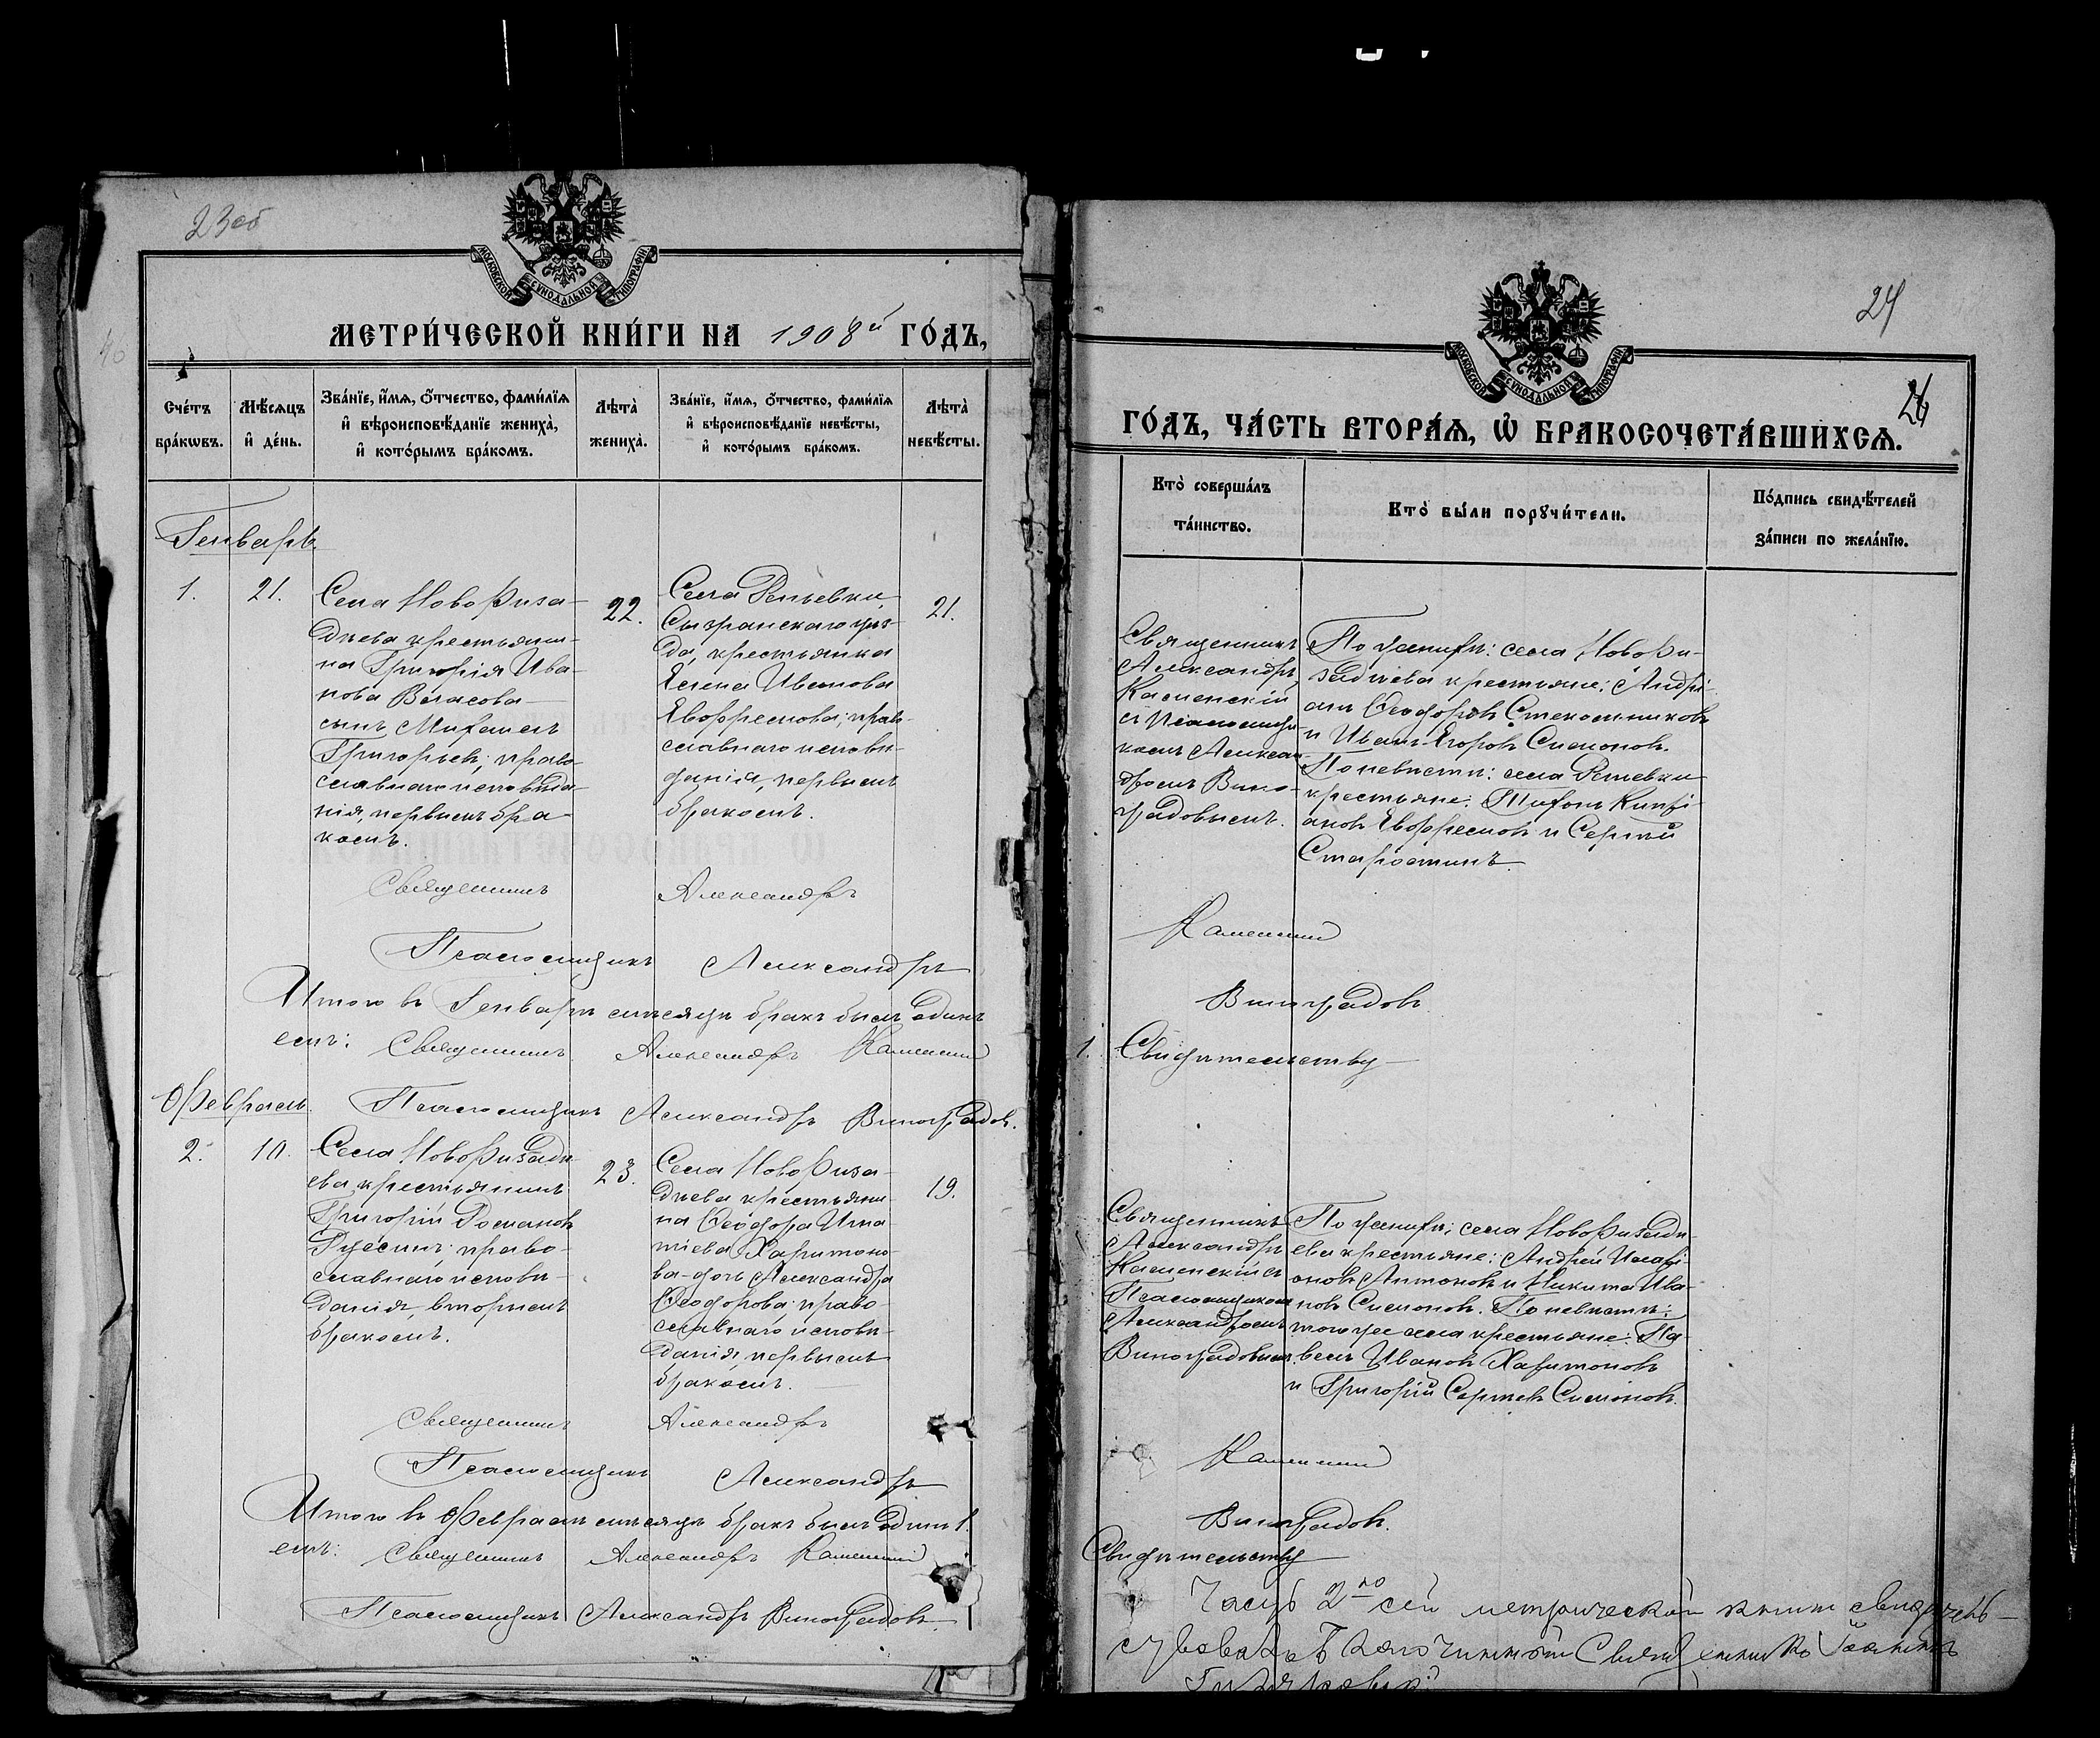 23об
МОСКОВСКОЙ СѴНОДАЛЬНОЙ ТИПОГРАФІИ
МЕТРИ́ЧЕСКОЙ КНИ́ГИ НА 1908й ГО́ДЪ,
Сче́тъ бра́кωвъ.
Мѣ́сяцъ и҆ де́нь.
Зва́нїе, и҆́мѧ, ѻ҆́тчество, фами́лїѧ и҆ вѣроисповѣ́данїе жениха̀, и҆ кото́рымъ бра́комъ.
Лѣта̀ жениха̀.
Зва́нїе, и҆́мѧ, ѻ҆́тчество, фами́лїѧ и҆ вѣроисповѣ́данїе невѣ́сты, и҆ кото́рымъ бра́комъ.
Лѣта̀ невѣ́сты.
Генварь.
1.
21.
Села Новориза-
дѣева крестьяни-
на Григорія Ива-
нова Власова
сынъ, Михаилъ
Григорьевъ; право-
славнаго исповѣда-
нія, первымъ бра-
комъ.
22.
Села Репьевки,
Сызранскаго уѣз-
да, крестьянка
Елена Иванова
Евофремова; прав-
славнаго исповѣ-
данія, первымъ
бракомъ.
21.
Священникъ Александръ
Псаломщикъ Александръ
Итого въ Генварѣ мѣсяцѣ бракъ былъ одинъ
емъ: Священникъ Александръ Каменскій
Февраль. Псаломщикъ Александръ Виноградовъ.
2.
10.
Села Новоризадѣ-
ева крестьянинъ
Григорій Романовъ
право-
славнаго исповѣ-
данія, вторымъ
бракомъ.
23.
Села Новориза-
дѣева крестьяни-
на Ѳеодора Игна-
тіева Харитоно-
ва-дочь Александра
Ѳеодорова; право-
славнаго исповѣ-
данія, первымъ
бракомъ.
19.
Священникъ Александръ
Псаломщикъ Александръ
Итого въ Февралѣ мѣсяцѣ бракъ былъ одинъ 1.
емъ: Священникъ Александръ Каменскій
Псаломщикъ Александръ Виноградовъ.
24
26
МОСКОВСКОЙ СѴНОДАЛЬНОЙ ТИПОГРАФІИ
ГО́ДЪ, ЧА́СТЬ ВТОРА́Ѧ, Ѡ҆ БРАКОСОЧЕТА́ВШИХСѦ.
Кто̀ соверша́лъ та́инство.
Кто̀ бы́ли порꙋчи́тели.
По́дпись свидѣ́телей за́писи по жела́нїю.
Священникъ
Александръ
Каменскій
съ Псаломщи-
комъ Алексан-
дромъ Вино-
градовымъ.
По женихѣ: села Новори-
задѣева крестьяне: Андрі-
анъ Ѳеодоровъ Стекольниковъ
и Иванъ Егоровъ Симоновъ.
По невѣстѣ: села Репьевки
крестьяне: Тихонъ Кипрі-
ановъ Евофремовъ и Сергѣй
Старостинъ.
Каменскій
Виноградовъ
1. Свидѣтельству-
Священникъ
Александръ
Каменскій съ
Псаломщикомъ
Александромъ
Виноградовымъ.
По женихѣ: села Новоризадѣ-
ева крестьяне: Андрей Илларі-
оновъ Антоновъ и Никита Ива-
новъ Симоновъ. По невѣстѣ:
того же села крестьяне: Па-
велъ Ивановъ Харитоновъ
и Григорій Сергѣевъ Симоновъ.
Каменскій
Виноградовъ.
Свидѣтельству-
Часть 2ю сей метрической книги свидѣтель-
ствовалъ Благочинный Священникъ Іоаннъ